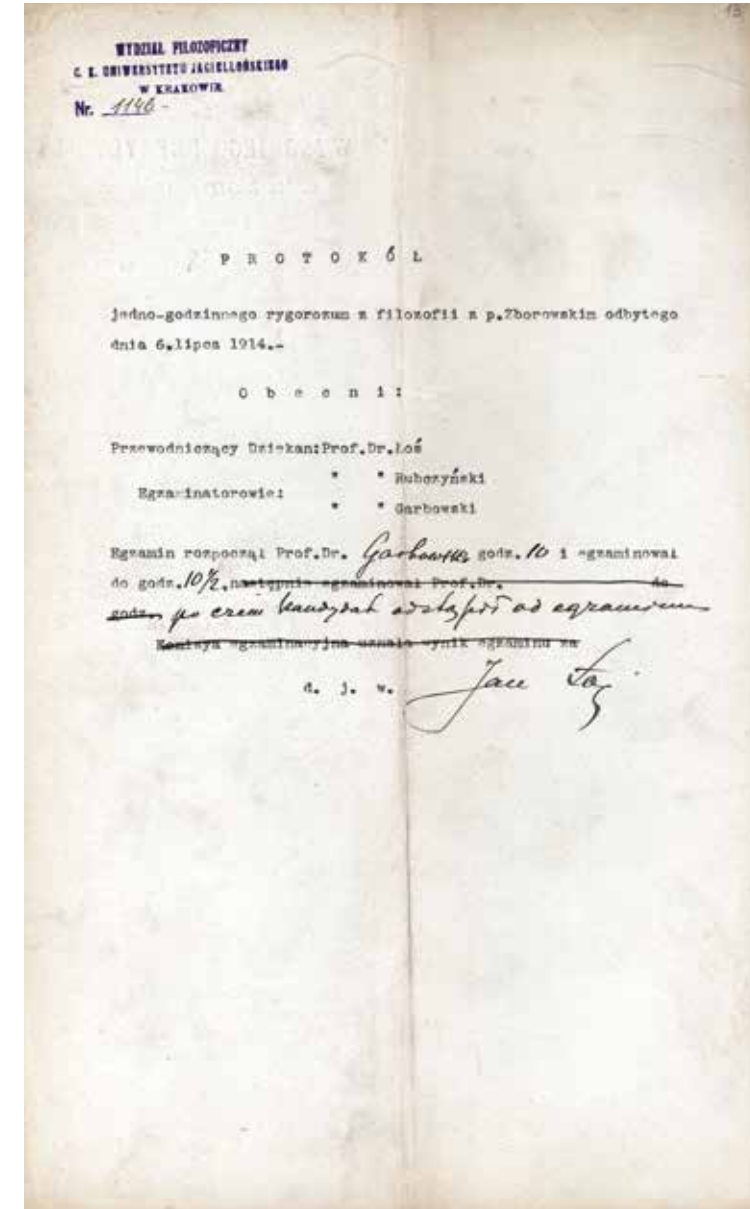 13
WYDZIAŁ FILOZOFICZNY
C. K. UNIWERSYTETU JAGIELLOŃSKIEGO
W KRAKOWIE
Nr. 1146 -
PROTOKÓŁ
jedno-godzinnego rygorozum z filozofii z p.Zborowskim odbytego
dnia 6.lipca 1914.-
Obecni:
Przewodniczący Dziekan:Prof.Dr.Łoś
" " Rubczyński
Egzaminatorowie:
" " Garbowski
Egzamin rozpoczął Prof.Dr. Garbowski godz. 10 i egzaminował
do godz. 10½, następnie egzaminował Prof.Dr. do
godz. po czem kandydat odstąpił od egzaminu
Komisya egzaminacyjna uznała wynik egzaminu za
d. j. w. Jan Łoś